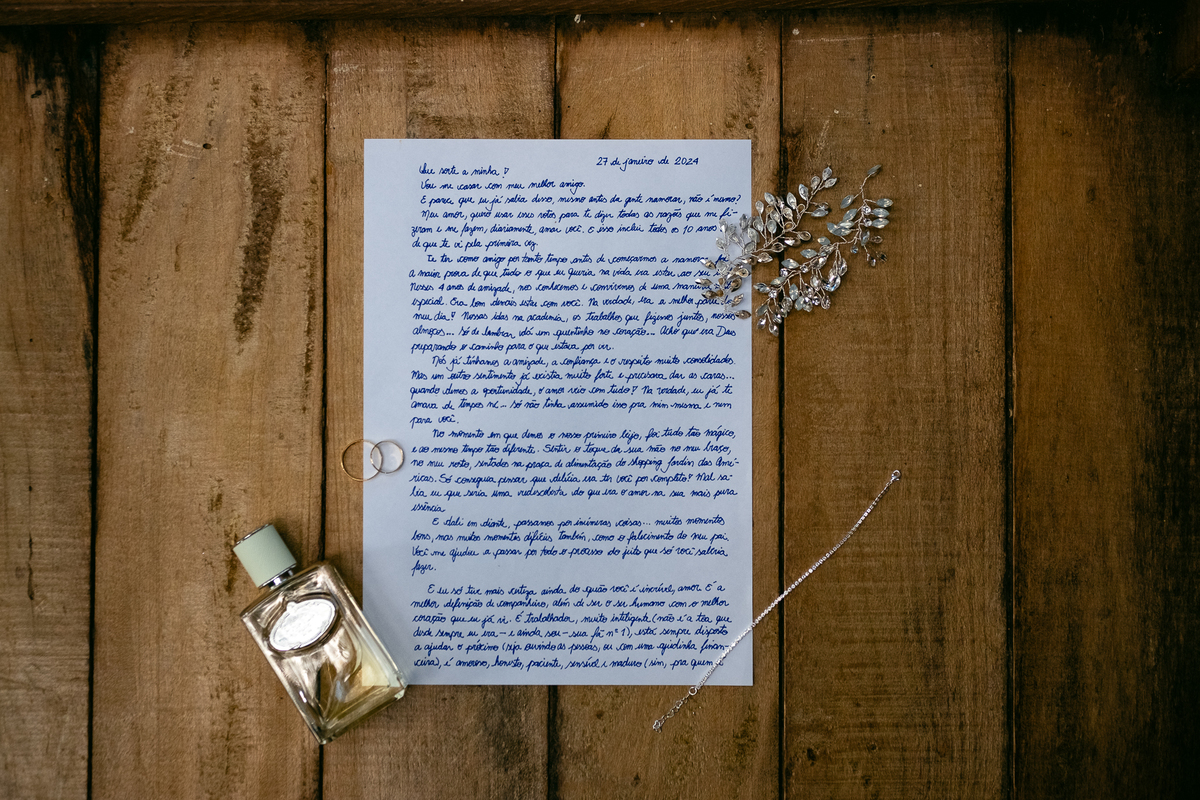 27 de janeiro de 2024
Que sorte a minha!
Vou me casar com meu melhor amigo.
E parece que eu já sabia disso, mesmo antes da gente namorar, não é mesmo?
Meu amor, quero usar esses votos para te dizer todas as razões que me fi-
zeram e me fazem, diariamente, amar você. E isso inclui todos os 10 anos
de que te vi pela primeira vez.
Te ter como amigo por tanto tempo antes de começarmos a namorar foi
a maior prova de que tudo o que eu queria na vida era estar ao seu
Nesses 4 anos de amizade, nos conhecemos e convivemos de uma maneira
especial. Era bom demais estar com você. Na verdade, era a melhor parte do
meu dia! Nossas idas na academia, os trabalhos que fizemos juntos, nossos
almoços... só de lembrar dá um quentinho no coração... Acho que era Deus
preparando o caminho para o que estava por vir.
Nós já tínhamos a amizade, a confiança e o respeito muito consolidados.
Mas um outro sentimento já existia muito forte e precisava dar as caras...
quando demos a oportunidade, o amor veio com tudo! Na verdade, eu já te
amava de tempos né... só não tinha assumido isso pra mim mesma e nem
para você.
No momento em que demos o nosso primeiro beijo, foi tudo tão mágico,
e ao mesmo tempo tão diferente. Sentir o toque da sua mão no meu braço,
no meu rosto, sentados na praça de alimentação do shopping Jardim das Amé-
ricas. Só conseguia pensar que delícia era ter você por completo! Mal sa-
bia eu que seria uma redescoberta do que era o amor na sua mais pura
essência.
E dali em diante, passamos por inúmeras coisas... muitos momentos
bons, mas muitos momentos difíceis também, como o falecimento do meu pai.
Você me ajudou a passar por todo o processo do jeito que só você saberia
fazer.
E eu só tive mais certeza ainda do quão você é incrível, amor. É a
melhor definição de companheiro, além de ser o ser humano com o melhor
coração que eu já vi. É trabalhador, muito inteligente (não é a toa que
desde sempre eu era - e ainda sou - sua fã nº 1), está sempre disposto
a ajudar o próximo (seja ouvindo as pessoas, ou com uma ajudinha finan-
ceira), é amoroso, honesto, paciente, sensível e maduro (sim, pra quem é